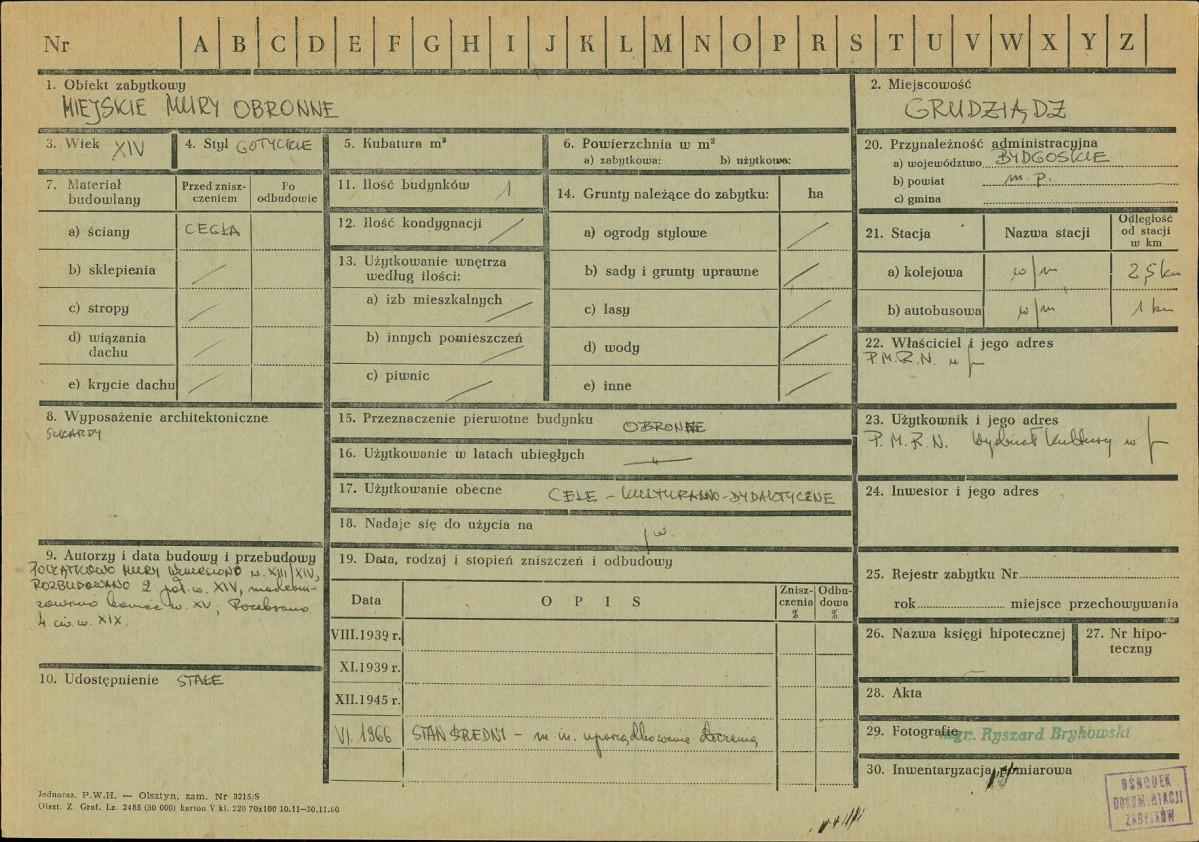 Nr A B C D E F G H I J K L M N O P R S T U V W X Y Z
1. Obiekt zabytkowy
MIEJSKIE MURY OBRONNE
2. Miejscowość
GRUDZIĄDZ
3. Wiek XIV
4. Styl GOTYCKIE
5. Kubatura m³
6. Powierzchnia w m²
a) zabytkowa: b) użytkowa:
20. Przynależność administracyjna
a) województwo BYDGOSKIE
b) powiat m.p.
c) gmina
7. Materiał budowlany
Przed zniszczeniem
Po odbudowie
a) ściany CEGŁA
b) sklepienia
c) stropy
d) wiązania dachu
e) krycie dachu
11. Ilość budynków 1
12. Ilość kondygnacji
13. Użytkowanie wnętrza według ilości:
a) izb mieszkalnych
b) innych pomieszczeń
c) piwnic
14. Grunty należące do zabytku: ha
a) ogrody stylowe
b) sady i grunty uprawne
c) lasy
d) wody
e) inne
21. Stacja Nazwa stacji Odległość od stacji w km
a) kolejowa w/m 2,5 km
b) autobusowa w/m 1 km
22. Właściciel i jego adres
P.M.R.N.
8. Wyposażenie architektoniczne
SZKARPY
15. Przeznaczenie pierwotne budynku OBRONNE
16. Użytkowanie w latach ubiegłych
17. Użytkowanie obecne CELE - KULTURALNO-DYDAKTYCZNE
18. Nadaje się do użycia na j.w.
23. Użytkownik i jego adres
P.M.R.N. Wydział Kultury
24. Inwestor i jego adres
9. Autorzy i data budowy i przebudowy
POCZĄTKOWO MURY WZNIESIONO w. XIII/XIV,
ROZBUDOWANO 2 poł. w. XIV, moderni-
zowano koniec w. XV; Rozebrano
4 ćw. w. XIX.
10. Udostępnienie STAŁE
19. Data, rodzaj i stopień zniszczeń i odbudowy
Data OPIS Zniszczenia % Odbudowa %
VIII.1939 r.
XI.1939 r.
XII.1945 r.
VI.1966 STAN ŚREDNI - m. in. uporządkowanie
25. Rejestr zabytku Nr
rok miejsce przechowywania
26. Nazwa księgi hipotecznej
27. Nr hipoteczny
28. Akta
29. Fotografie
mgr. Ryszard Brykowski
30. Inwentaryzacja pomiarowa
Jednoraz. P.W.H. — Olsztyn, zam. Nr 3215/S
Olszt. Z. Graf. Lz. 2485 (30 000) karton V kl. 220 70x100 10.11—30.11.60
OŚRODEK
DOKUMENTACJI
ZABYTKÓW